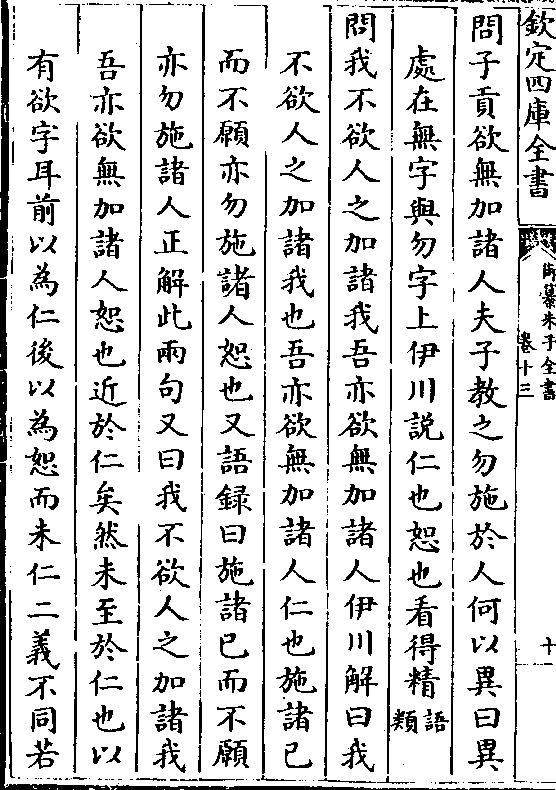 欽定四庫全書
御纂朱子全書
卷十三
十
問子貢欲無加諸人夫子教之勿施於人何以異曰異
處在無字與勿字上伊川説仁也恕也看得精語類
問我不欲人之加諸我吾亦欲無加諸人伊川解曰我
不欲人之加諸我也吾亦欲無加諸人仁也施諸己
而不願亦勿施諸人恕也又語録曰施諸己而不願
亦勿施諸人正解此兩句又曰我不欲人之加諸我
吾亦欲無加諸人恕也近於仁矣然未至於仁也以
有欲字耳前以為仁後以為恕而未仁二義不同若